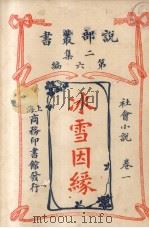 說部叢書
二集
第六編
社會小說 卷一
冰雪因緣
上海
商務印書館發行